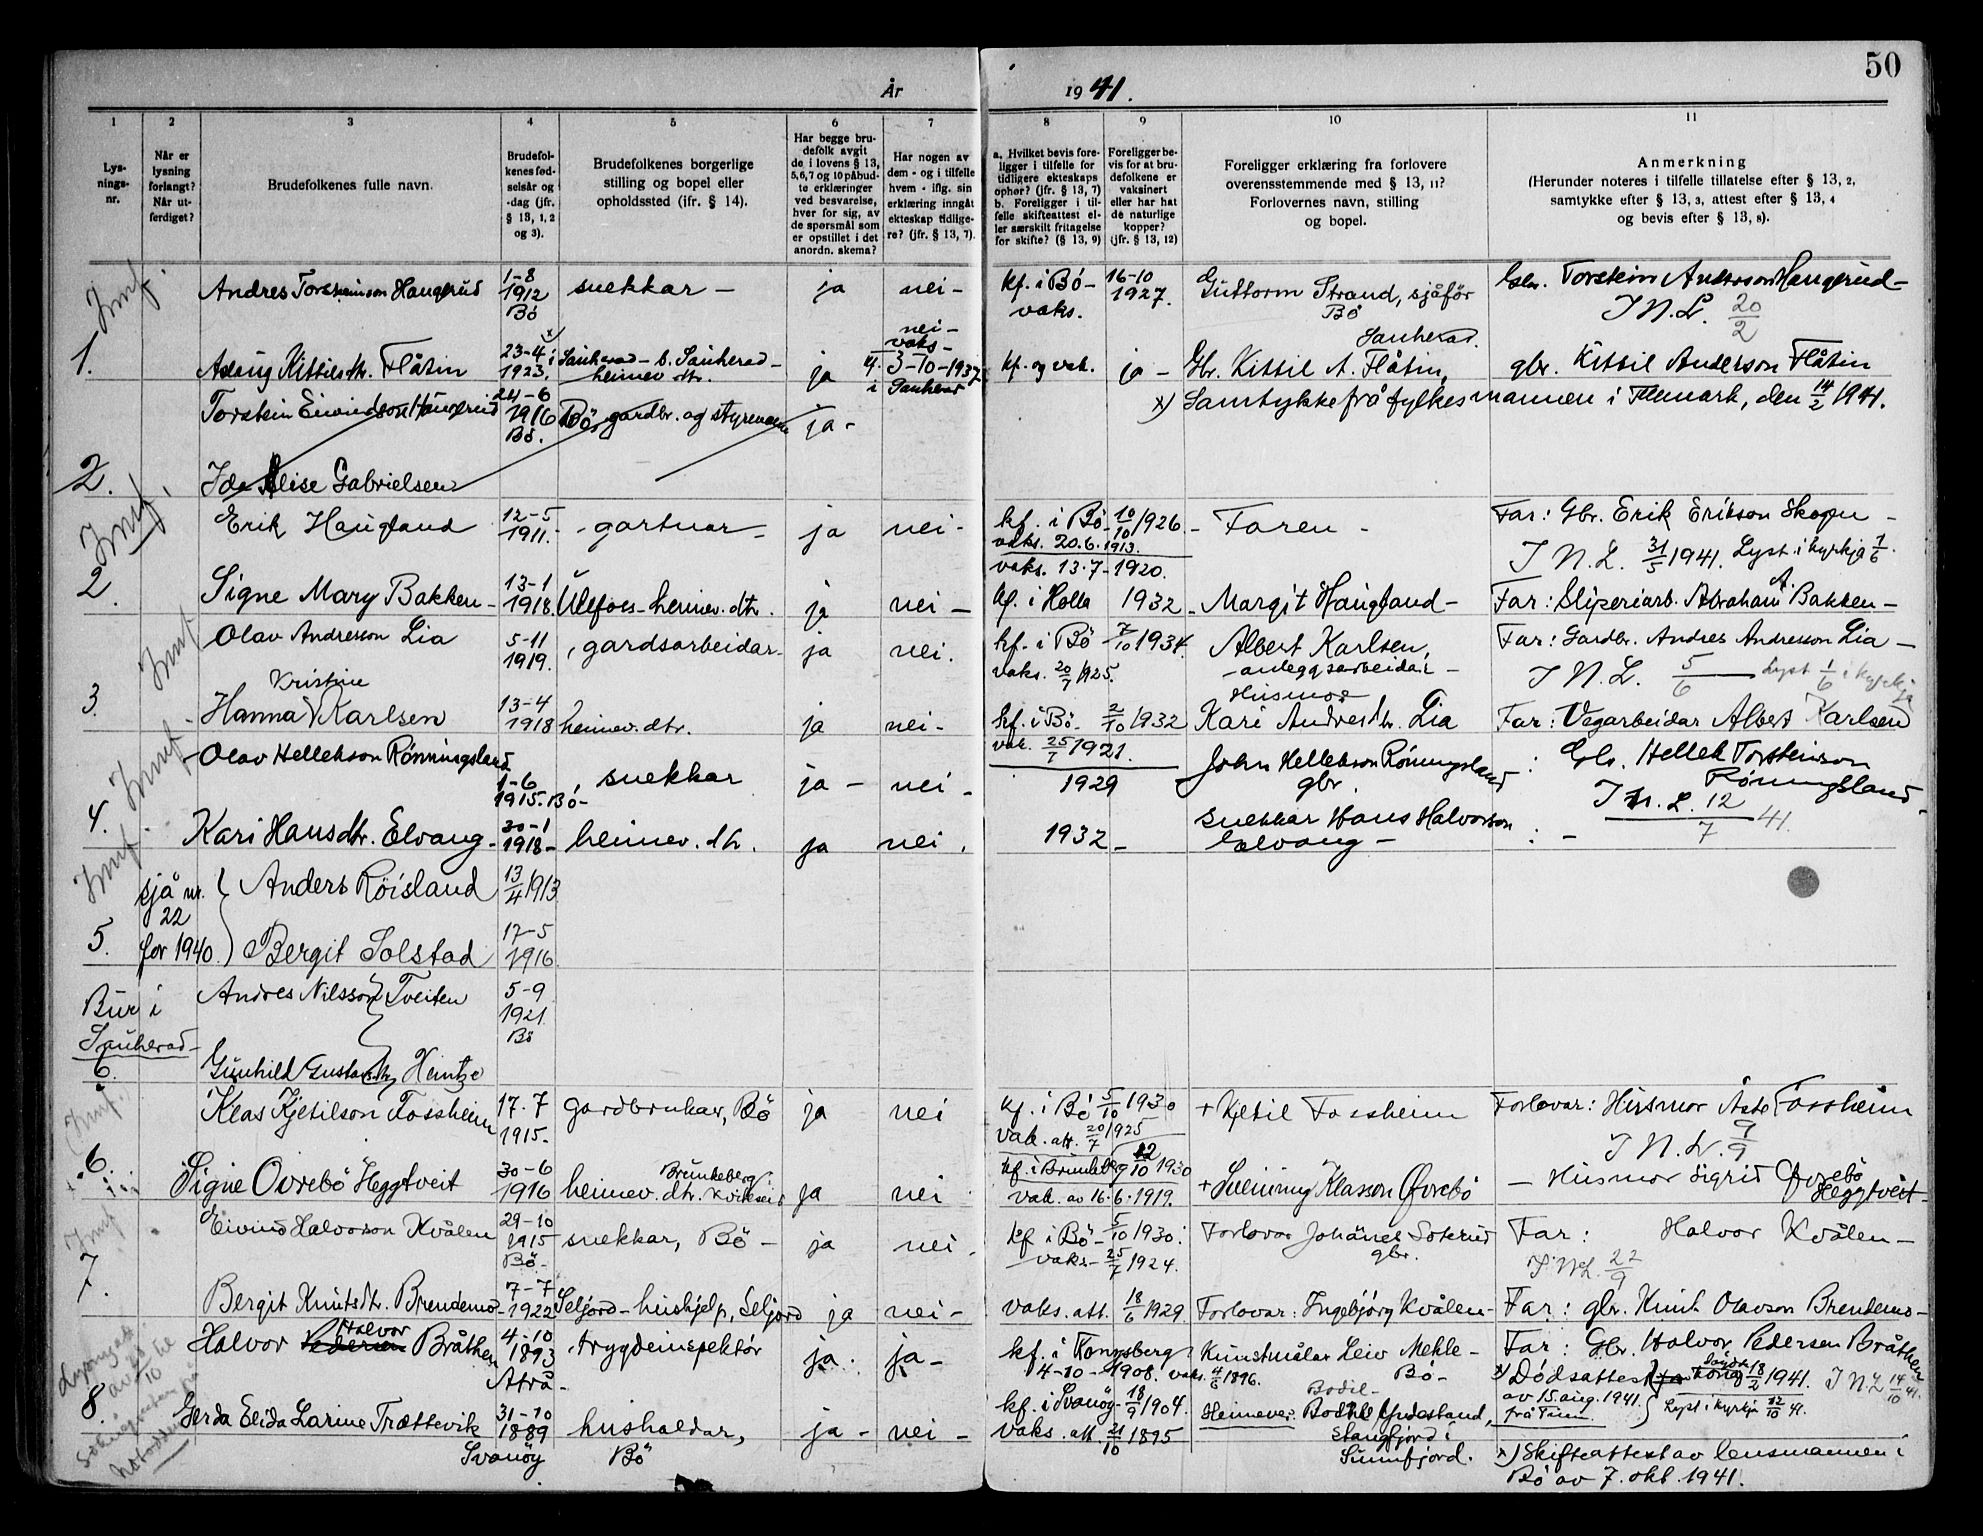 50
År
19 41.
1
2
3
4
5
6
7
8
9
10
11
Lys-
nings-
nr.
Når er
lysning
forlangt?
Når ut-
ferdiget?
Brudefolkenes fulle navn.
Brudefol-
kenes fød-
selsår og
-dag (jfr.
§ 13, 1, 2
og 3).
Brudefolkenes borgerlige
stilling og bopel eller
opholdssted (ifr. § 14).
Har begge bru-
defolk avgit
de i lovens § 13,
5,6,7 og 10 påbud-
te erklæringer
ved besvarelse,
hver for sig, av
de spørsmål som
er opstillet i det
anordn. skema?
Har nogen av
dem - og i tilfelle
hvem - iflg. sin
erklæring inngåt
ekteskap tidlige-
re? (jfr. § 13, 7).
a. Hvilket bevis fore-
ligger i tilfelle for
tidligere ekteskaps
ophør? (jfr. § 13, 7)
b. Foreligger i til-
felle skifteattest el-
ler særskilt fritagelse
for skifte? (§ 13, 9)
Foreligger be-
vis for at bru-
defolkene er
vaksinert
eller har hat
de naturlige
kopper?
(jfr. § 13, 12)
Foreligger erklæring fra forlovere
overensstemmende med § 13, 11?
Forlovernes navn, stilling
og bopel.
Anmerkning
(Herunder noteres i tilfelle tillatelse efter § 13, 2,
samtykke efter § 13, 3, attest efter § 13, 4
og bevis efter § 13, 8).
Innf.
1.
Andres Torsteinson Haugerud
1-8
1912
Bö
snekkar -
ja
nei -
kf. i Bö -
vaks.
16-10
1927.
Guttorm Strand, sjåför
Bö
Gbr. Torstein Andresson Haugerud -
I N. L. 20/2
Aslaug Kittilsdtr. Flåtin
x)
23-4 i
1923.
Sauherad - b. Sauherad -
heimev. dtr.
ja
nei -
vaks -
kf. 3-10-1937
i Sauherad
kf. og vak.
ja -
Sauherad.
Gbr. Kittil A. Flåtin,
gbr. Kittil Anderson Flåtin
x) Samtykke frå fylkesmannen i Telemark, den 14/2 1941.
2.
Torstein Eivindson Haugerud
24-6
1916
Bö.
Bö, gardbr. og
ja -
Ida Elise Gabrielsen
Innf.
2.
Erik Haugland
12-5
1911.
gartnar -
ja
nei -
kf. i Bö 10/10 1926.
vaks. 20.6.1913.
- Faren -
Far: Gbr. Erik Erikson Skogen -
I N. L. 31/5 1941. Lyst i kyrkja 1/6.
Signe Mary Bakken -
13-1
1918.
Ulefoss - heimev. dtr.
ja
nei -
vaks. 13.7-1920.
kf. i Holla 1932 -
Margit Haugland -
Far: Sliperiarb. Abraham A. Bakken -
Innf.
3.
Olav Andresson Lia
5-11
1919.
gardsarbeidar -
ja
nei.
kf. i Bö 7/10 1934.
vaks. 20/7 1925.
Albert Karlsen,
- anleggsarbeidar -
Far: Gardbr. Andres Andresson Lia -
I N. L. 5/6 Lyst 1/6 i kyrkja
Kristine
Hanna Karlsen
13-4
1918
heimev. dtr.
ja
nei -
kf. i Bö 2/10 1932
vak. 25/7 1921.
Husmor
Kari Andresdtr. Lia
Far: Vegarbeidar Albert Karlsen
Innf.
4.
Olav Hellekson Rönningsland
1-6
1915. Bö -
snekkar
ja -
nei -
1929
John Hellekson Röningsland
gbr.
: Gbr. Hellek Torsteinson
Röningsland -
I N. L. 12/7 41.
Kari Hansdtr. Elvang -
30-1
1918 -
heimev. dtr.
ja
nei.
1932 -
snekkar Hans Halvorson
Elvang -
: -
Innf.
5.
sjå nr.
22
for 1940.
Anders Röisland
13/4 1913
Bergit Solstad
17-5
1916.
Bur i
Sauherad -
6.
Andres Nilsson Tveiten
5-9
1921.
Bö
Gunhild Heintze
Innf.
6.
Klas Kjetilson Fossheim
17.7
1915 -
gardbrukar, Bö
ja
nei
kf. i Bö 5/10 1930
vak. att. 20/7 1925
+ Kjetil Fossheim
Forlovar: Husmor Åste Fossheim
I N. L. 9/9
Signe Övrebö Heggtveit
30-6
1916
Brunkeberg
heimev. dtr. Kviteseid
ja
nei
kf. i Brunkeberg 12/10 1930
vak. av 16.6.1919.
+ Sveinung Klasson Övrebö
- Husmor Sigrid Øvrebö
Heggtveit -
Innf.
7.
Eivind Halvorson Kvålen
29-10
1915
Bö -
snekkar, Bö -
ja
nei.
kf i Bö - 5/10 1930.
vaks - 25/7 1924.
Forlovar Johånes Soterud
gbr.
Far: Halvor Kvålen -
I N L. 22/9
Bergit Knutsdtr. Brendemo -
7-7
1922
Seljord - hushjelp, Seljord
ja
nei -
vaks. att. 18/6 1929.
Forlovar: Ingebjörg Kvålen -
Far: gbr. Knut Olavson Brendemo -
8.
Halvor
Halvor Pedersen Bråthen
4-10
1893
Atrå -
trygdeinspektör
ja.
ja -
kf. i Kongsberg
4-10-1908. vaks. 4/6 1896.
Kunstmålar Leiv Mehle -
Bö -
Far: Gbr. Halvor Pedersen Bråthen
x) Dödsattest
av 15. aug. 1941.
frå Tinn.
18/2 1941. I N L 14/10 41.
Lyst i kyrkja 12/10 41.
Gerda Elida Larine Trættevik
31-10
1889
Svanöy
hushaldar,
Bö
ja -
nei -
kf. i Svanöy 18/9 1904.
vaks. att. 21/10 1895
Bodil -
Heimever. Bodil Yndestand,
Stangfjord i
Sunnfjord.
x) Skifteattest av lensmannen i
Bö av 7. okt. 1941.